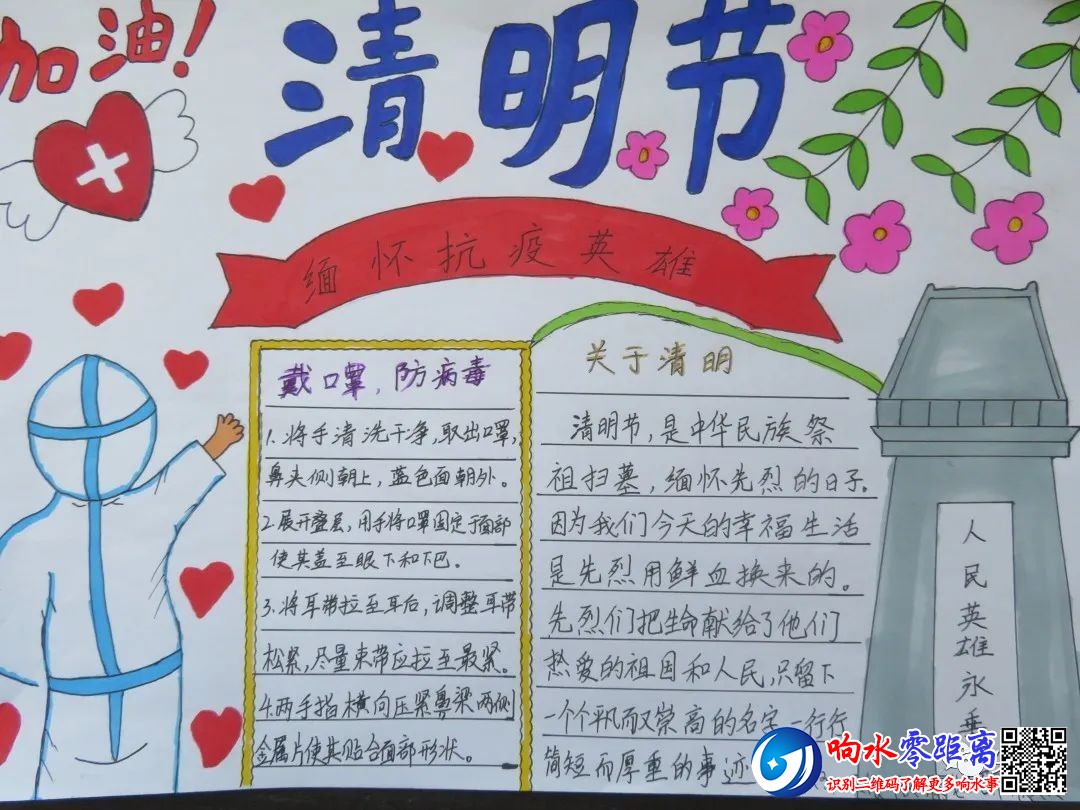 加油!
清明节
缅怀抗疫英雄
戴口罩,防病毒
1.将手清洗干净,取出口罩,
鼻夹侧朝上,蓝色面朝外。
2.展开叠层,用手将口罩固定于面部
使其盖至眼下和下巴。
3.将耳带拉至耳后,调整耳带
松紧,尽量束带应拉至最紧。
4.两手指横向压紧鼻梁两侧
金属片使其贴合面部形状。
关于清明
清明节,是中华民族祭
祖扫墓,缅怀先烈的日子.
因为我们今天的幸福生活
是先烈用鲜血换来的。
先烈们把生命献给了他们
热爱的祖国和人民,只留下
一个个平凡而又崇高的名字一行行
简短而厚重的事迹
人民英雄永垂
响水零距离
识别二维码了解更多响水事